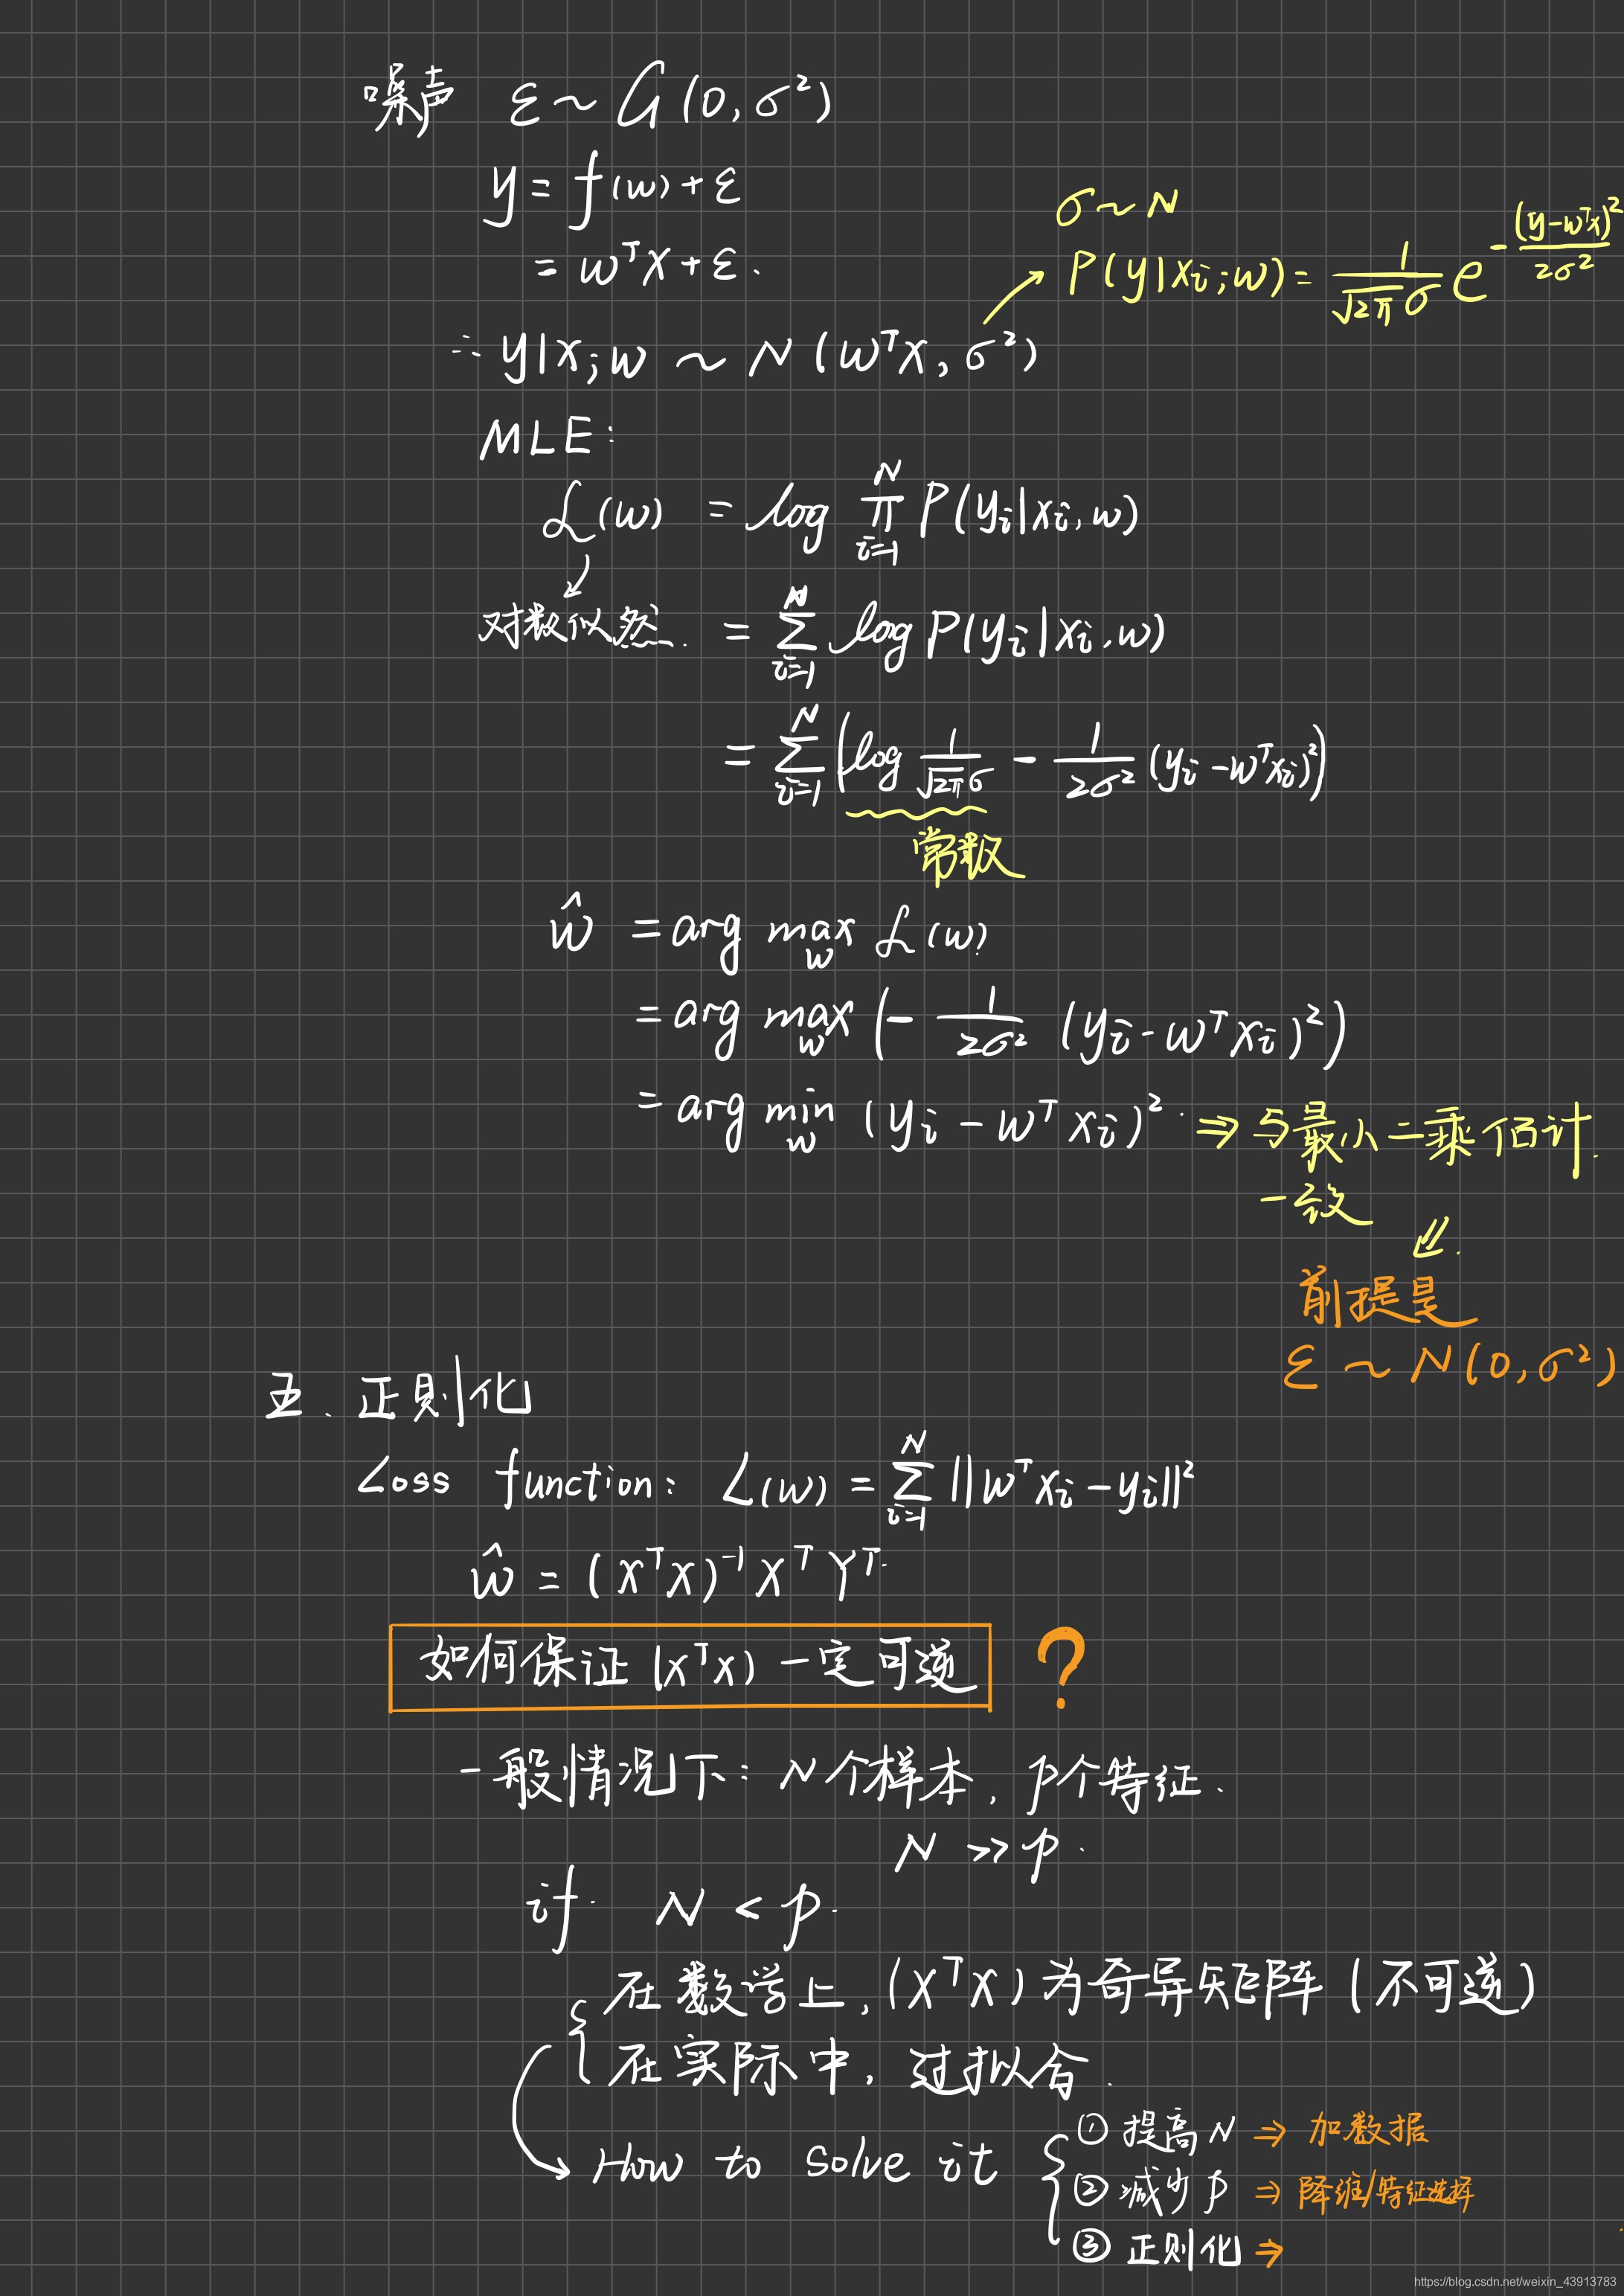 噪声 ε ~ G(0, σ²)
y = f(w) + ε
= wᵀx + ε.
σ ~ N
P(y|xᵢ;w) = 1/(√2π σ) e^(-(y-wᵀx)²/(2σ²))
∴ y|x;w ~ N(wᵀx, σ²)
MLE:
ℒ(w) = log ∏_{i=1}^{N} P(yᵢ|xᵢ, w)
对数似然. = ∑_{i=1}^{N} log P(yᵢ|xᵢ, w)
= ∑_{i=1}^{N} (log 1/(√2π σ) - 1/(2σ²) (yᵢ - wᵀxᵢ)²)
常数
ŵ = arg max_w ℒ(w)
= arg max_w (- 1/(2σ²) (yᵢ - wᵀxᵢ)²)
= arg min_w (yᵢ - wᵀxᵢ)². ⇒ 与最小二乘估计.
一致
⇓.
前提是
ε ~ N(0, σ²)
五. 正则化
Loss function: L(w) = ∑_{i=1}^{N} ||wᵀxᵢ - yᵢ||²
ŵ = (XᵀX)⁻¹XᵀYᵀ
如何保证 (XᵀX) 一定可逆 ?
一般情况下: N个样本, p个特征.
N >> p.
if. N < p.
{ 在数学上, (XᵀX) 为奇异矩阵 (不可逆)
在实际中, 过拟合.
→ How to solve it { ① 提高 N ⇒ 加数据
② 减少 p ⇒ 降维/特征选择
③ 正则化 ⇒
https://blog.csdn.net/weixin_43913783